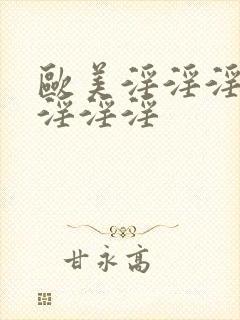 歐美淫淫淫
淫淫淫
甘永高